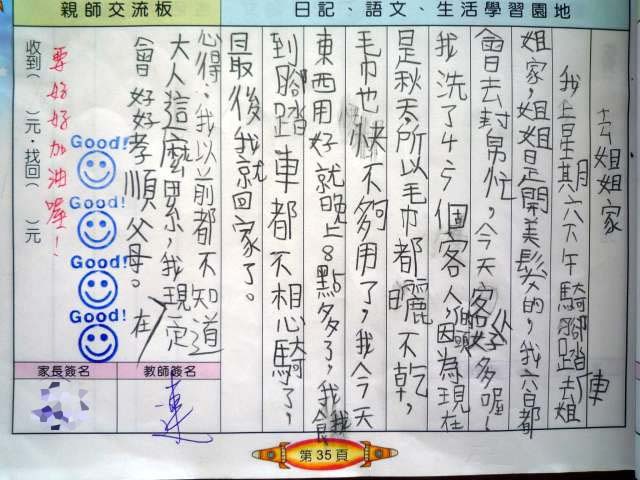 親師交流板
日記、語文、生活學習園地
去姐姐家
我上星期六下午騎腳踏車去姐
姐家,姐姐是開美髮的,我六日都
會去封忙,今天客人好多喔!
我洗了4、5個客人的頭,因為現在
是秋季所以毛巾都曬不乾,
毛巾也快不夠用了,我今天
東西用好就晚上8點多了,我
到腳踏車都不想騎了,
最後我就回家了。
心得:我以前都不知道
大人這麼累,我現在一定
會好好孝順父母。
要好好加油喔!
收到( )元,找回( )元
Good!
Good!
Good!
Good!
家長簽名
教師簽名
第35頁